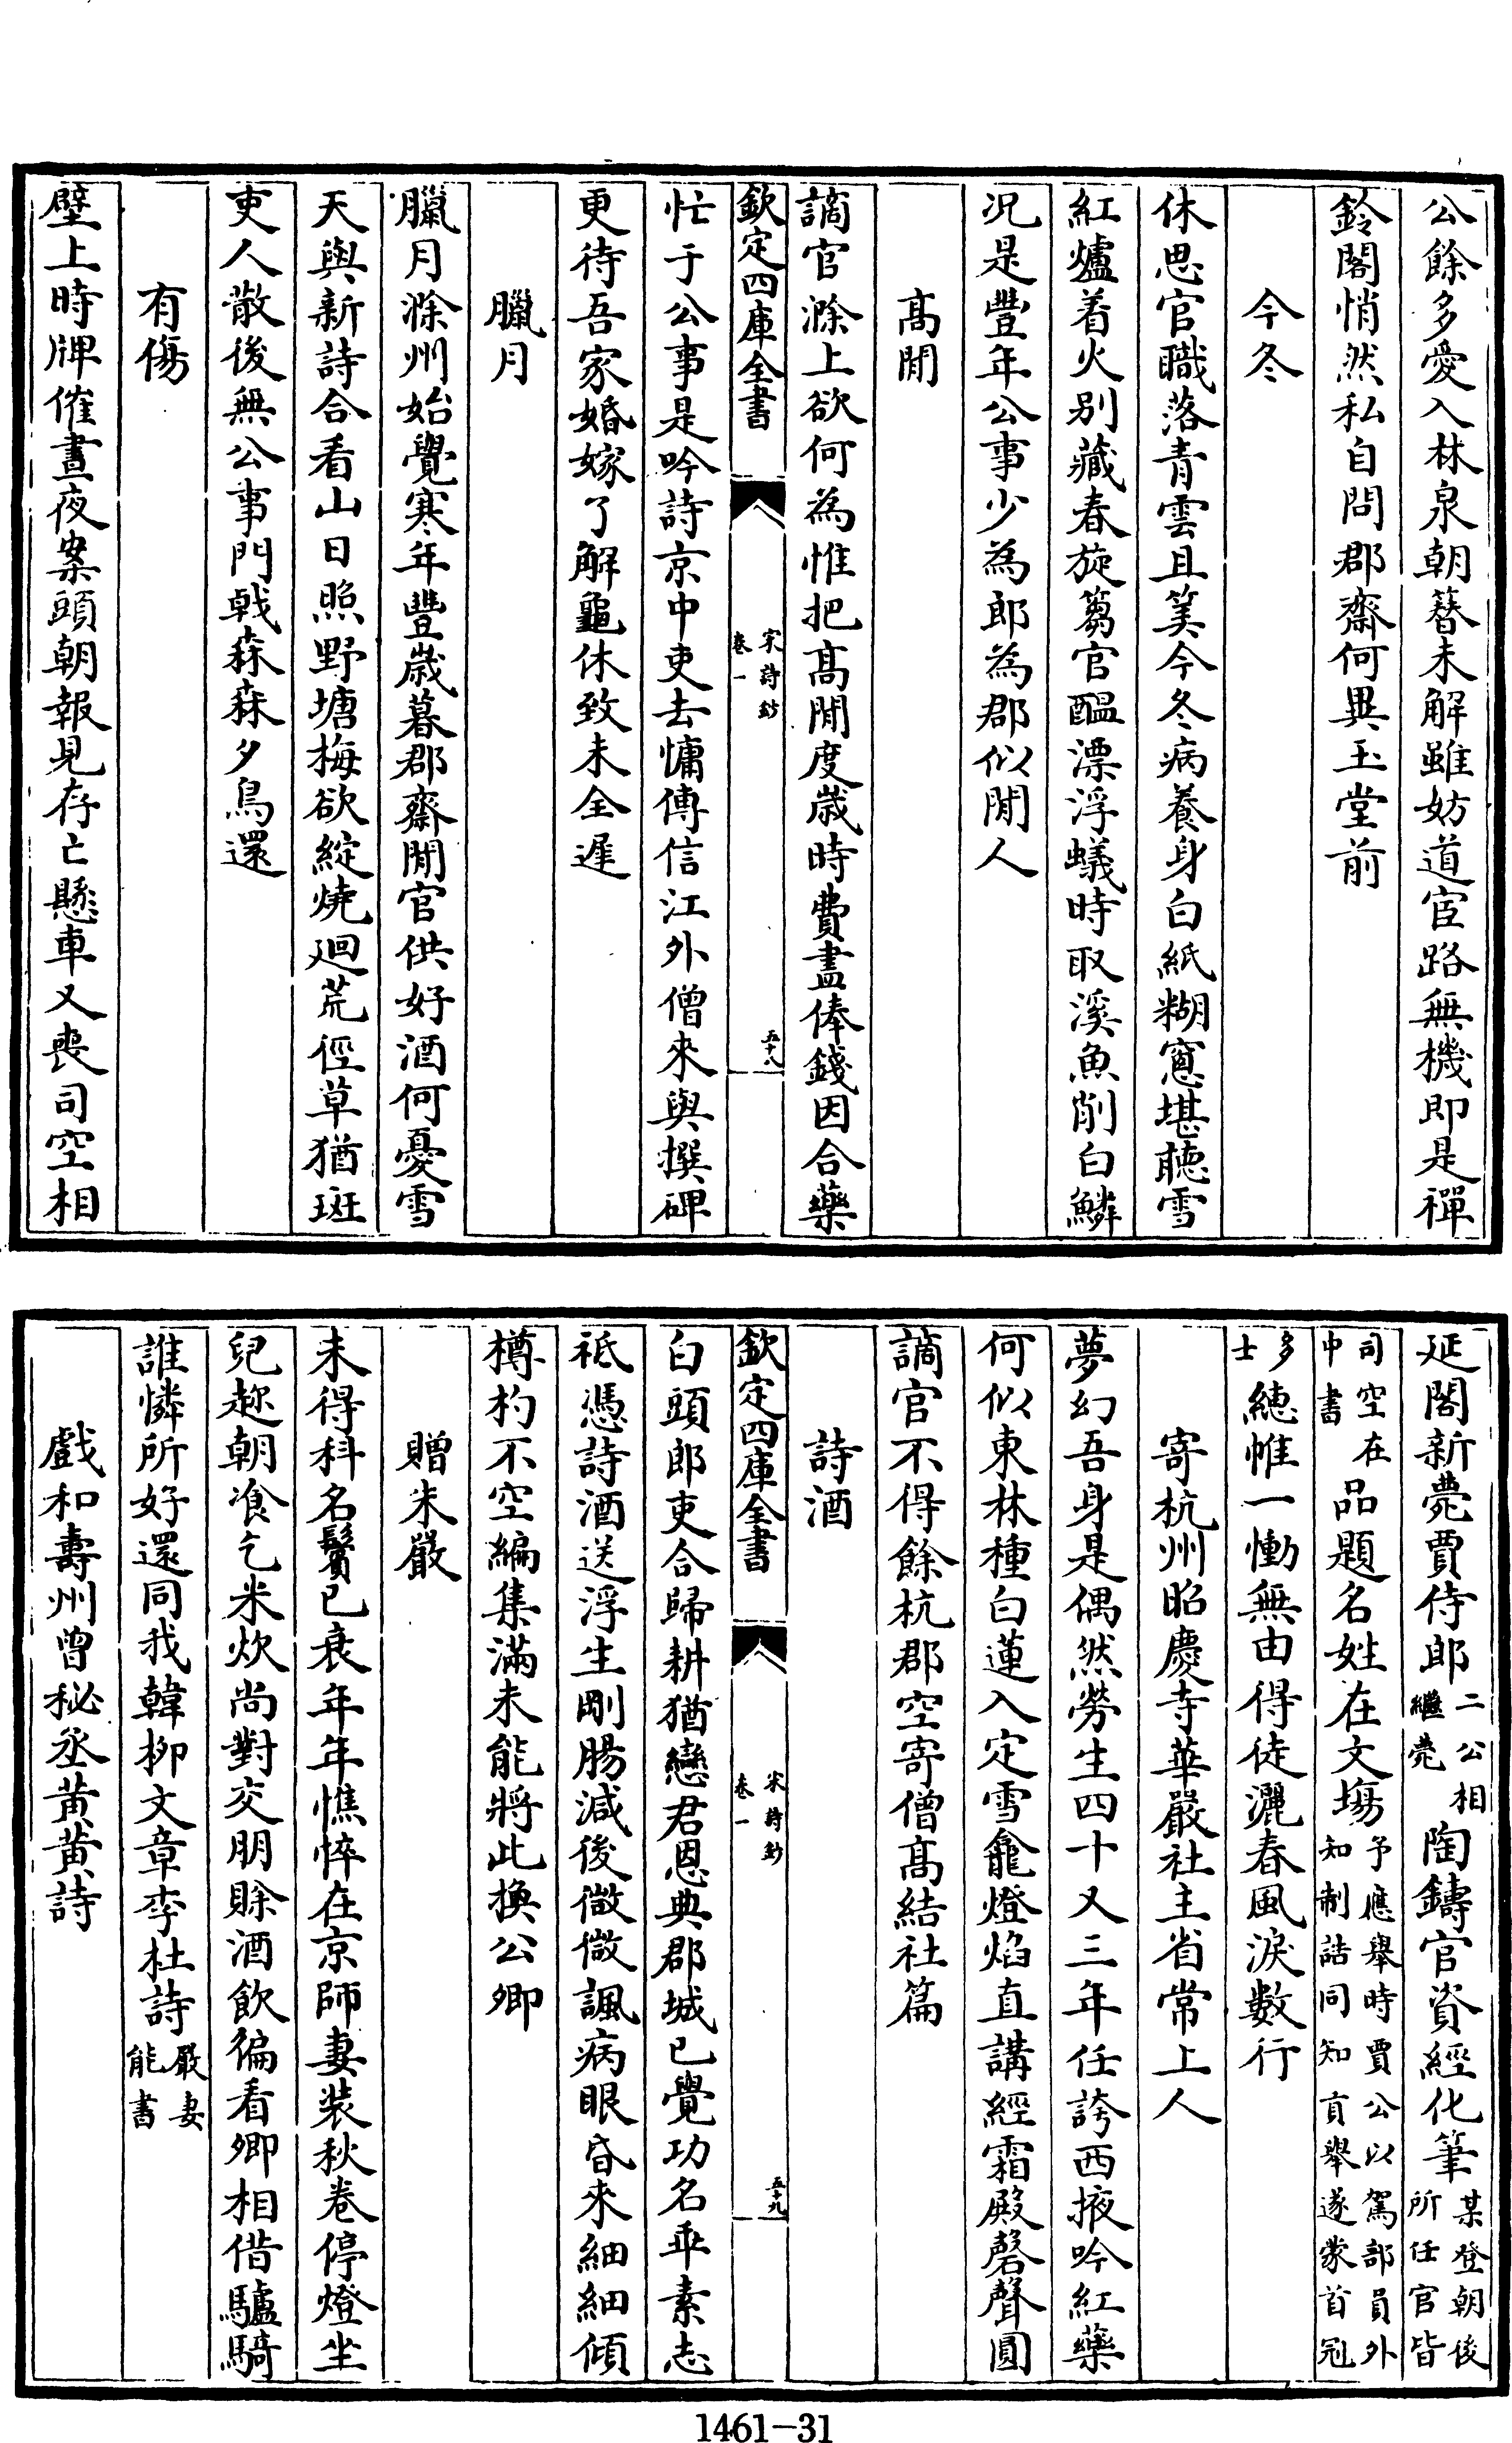 公餘多愛入林泉朝簪未解雖妨道宦路無機即是禪
鈴閣悄然私自問郡齋何異玉堂前
今冬
休思官職落青雲且筭今冬病養身白紙糊窻堪聽雪
紅爐着火別藏春旋篘官醞漂浮蟻時取溪魚削白鱗
况是豐年公事少為郎為郡似閒人
高閒
謫官滁上欲何為惟把高閒度歲時費盡俸錢因合藥
欽定四庫全書
宋詩鈔
卷一
五十八
忙于公事是吟詩京中吏去慵傳信江外僧來與撰碑
更待吾家婚嫁了解龜休致未全遲
臘月
臘月滁州始覺寒年豐歲暮郡齋閒官供好酒何憂雪
天與新詩合看山日照野塘梅欲綻燒廻荒徑草猶斑
吏人散後無公事門戟森森夕鳥還
有傷
壁上時牌催晝夜案頭朝報見存亡懸車又喪司空相
延閣新薨賈侍郎二公相繼薨陶鑄官資經化筆某登朝後所任官皆
司空在中書品題名姓在文塲予應舉時賈公以駕部員外知制誥同知貢舉遂蒙首冠
多士繐帷一慟無由得徒灑春風淚數行
寄杭州昭慶寺華嚴社主省常上人
夢幻吾身是偶然勞生四十又三年任誇西掖吟紅藥
何似東林種白蓮入定雪龕燈焰直講經霜殿磬聲圓
謫官不得餘杭郡空寄僧高結社篇
詩酒
欽定四庫全書
宋詩鈔
卷一
五十九
白頭郎吏合歸耕猶戀君恩典郡城已覺功名乖素志
祇憑詩酒送浮生剛腸減後微微諷病眼昏來細細傾
樽杓不空編集滿未能將此換公卿
贈朱嚴
未得科名鬢已衰年年憔悴在京師妻装秋卷停燈坐
兒趂朝飡乞米炊尚對交朋賒酒飲徧看卿相借驢騎
誰憐所好還同我韓柳文章李杜詩嚴妻能書
戲和壽州曾秘丞黃黃詩
1461-31